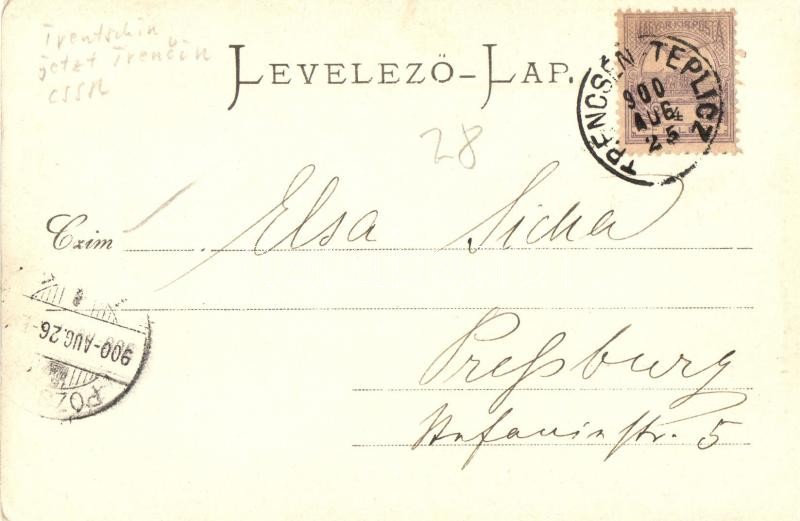 Trentschin
jetzt Trenčín
ČSSR
LEVELEZŐ-LAP.
MAGYAR KIR. POSTA
TRENCSEN TEPLICZ
900
AUG
25
28
Czim Elsa Sicha
900-AUG.26
POZS
Preßburg
Stefaniestr. 5